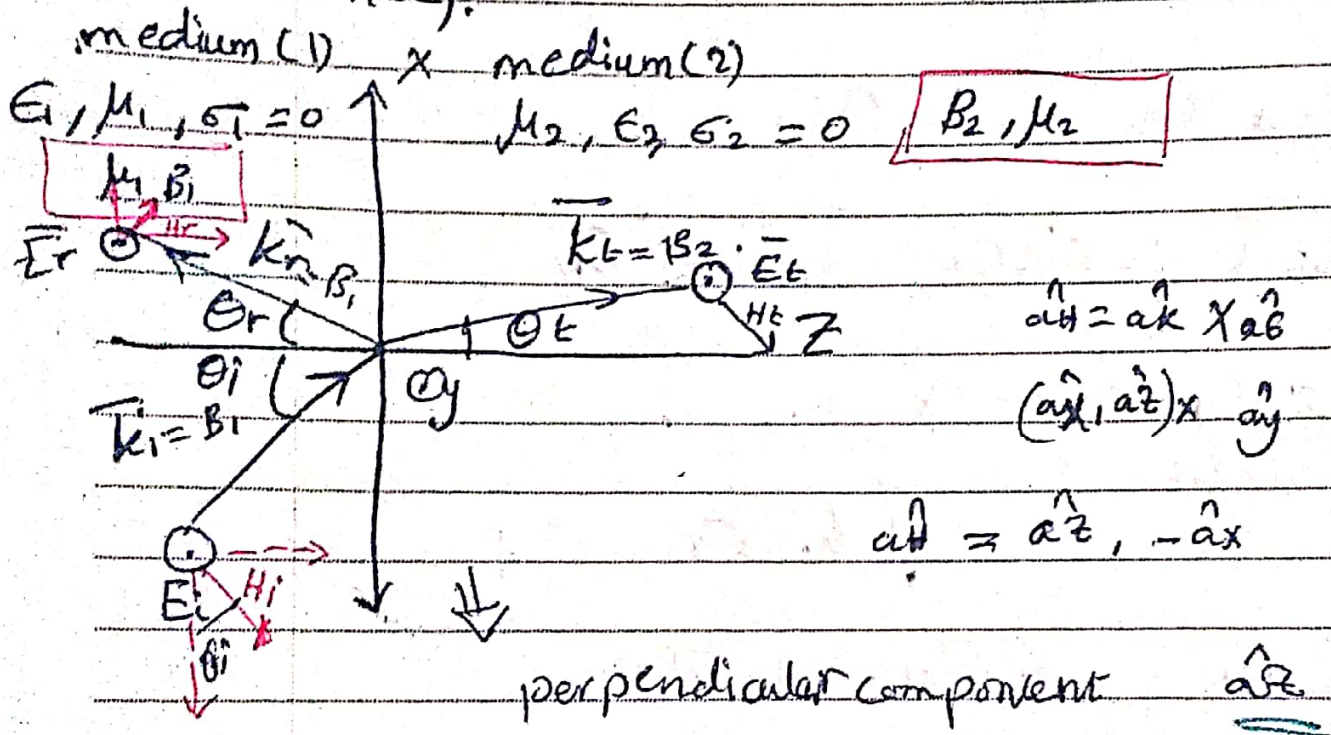 medium (1) x medium (2)
ϵ₁, μ₁, σ₁ = 0 μ₂, ϵ₂, σ₂ = 0 β₂, μ₂
μ₁ β₁
Ēr Hr k̄r β₁ k̄t = β₂ · Ēt
θr θt Ht Z âH = âk × âE
θi ⊙y (âx, âz) × ây
k̄i = β₁
âH = âz, -âx
Ei Hi
θi
perpendicular component